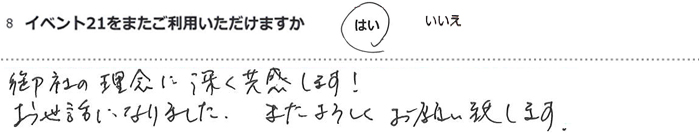 8 イベント21をまたご利用いただけますか はい いいえ
御社の理念に深く共感します!
お世話になりました. またよろしくお願い致します.